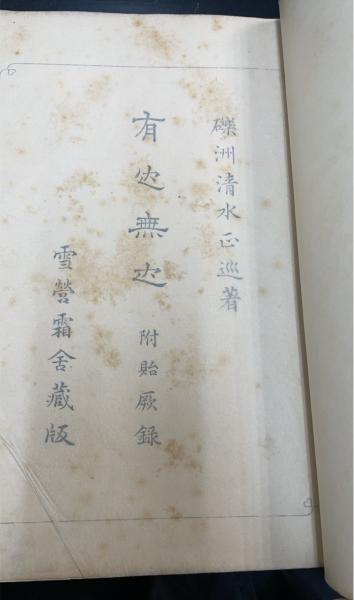 礫洲清水正巡著
有也無也 附貽厥録
雪營霜舍藏版